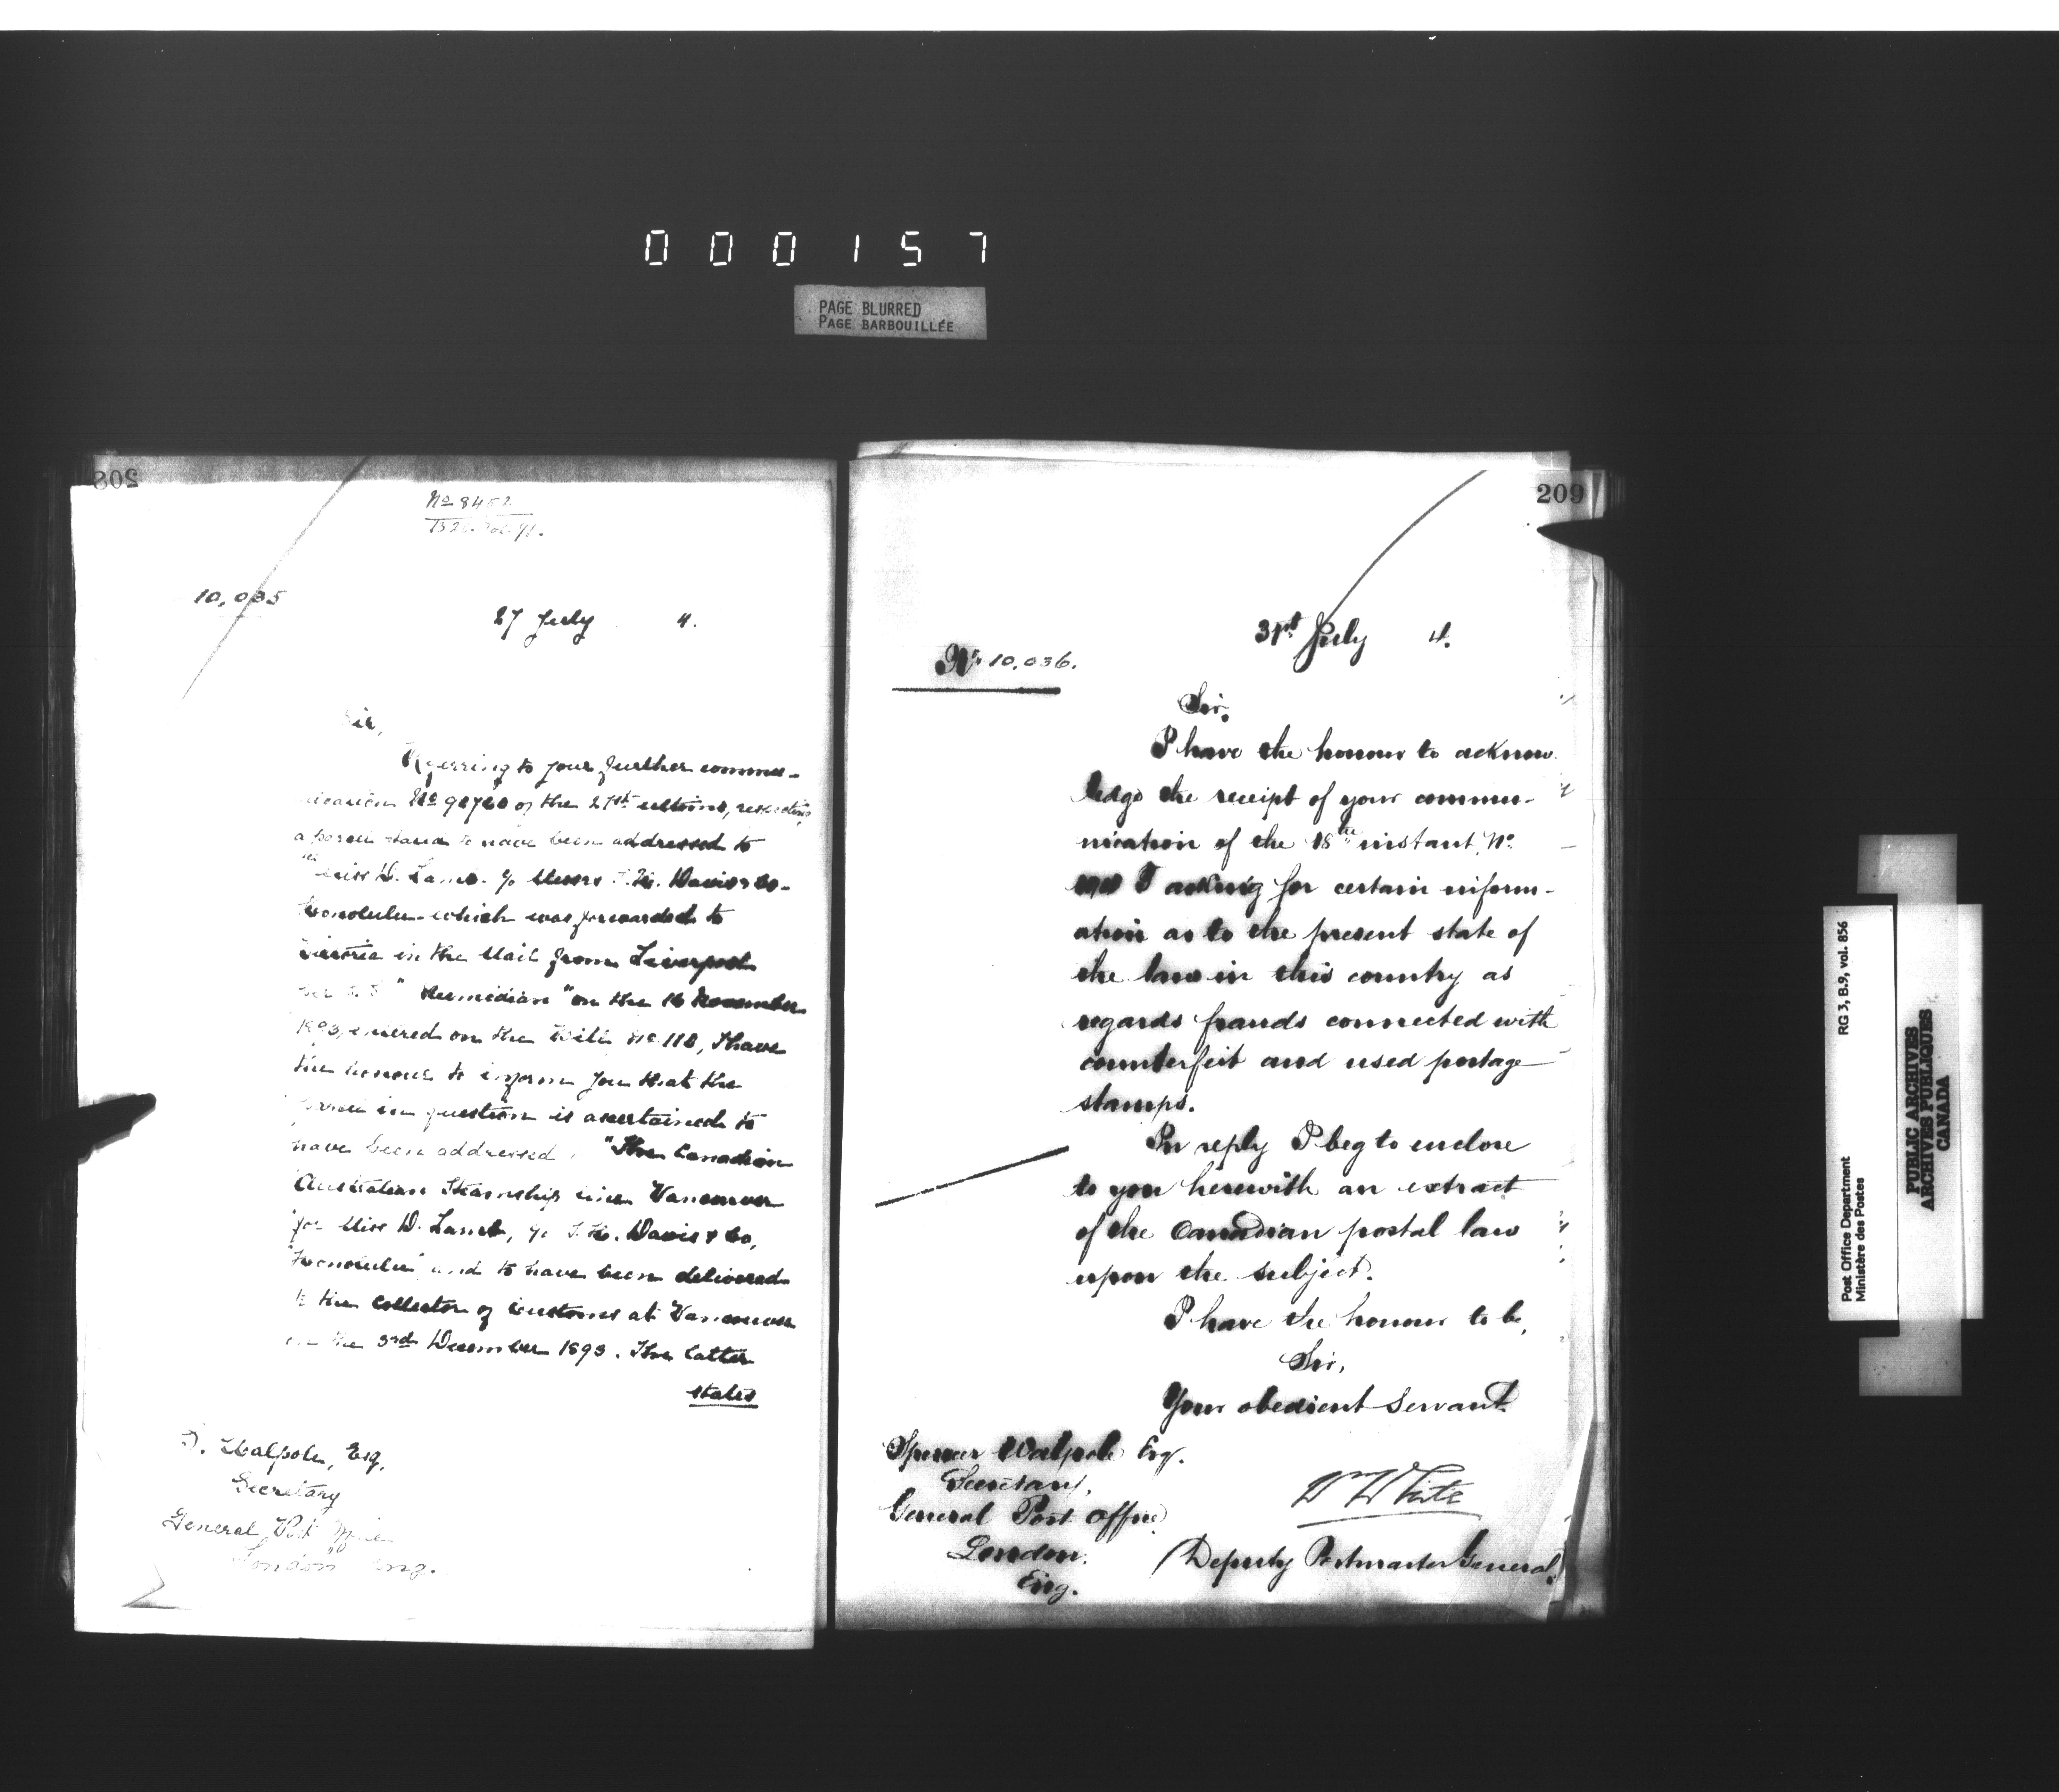 000157
PAGE BLURRED
PAGE BARBOUILLÉE
208
No 8452
10,035
27 July 4.
Sir,
Referring to your further commu-
nication No of the 27th ultimo, respecting
a parcel stated to have been addressed to
Miss D. Lamb c/o Messrs T. H. Davis & Co-
Honolulu which was forwarded to
Victoria in the Mail from Liverpool
per S.S. "Numidian" on the 16 November
1893, entered on the Bill No 118, I have
the honour to inform you that the
parcel in question is ascertained to
have been addressed "The Canadian
Australian Steamship Line Vancouver
for Miss D. Lamb, c/o T. H. Davis & Co,
Honolulu" and to have been delivered
to the Collector of Customs at Vancouver
on the 3rd December 1893. The latter
states
S. Walpole, Esq.
Secretary
General Post Office
London Eng.
209
31st July 4.
No 10,036.
Sir,
I have the honour to acknow-
ledge the receipt of your commu-
nication of the 18th instant, No
asking for certain inform-
ation as to the present state of
the law in this country as
regards frauds connected with
counterfeit and used postage
stamps.
In reply I beg to enclose
to you herewith an extract
of the Canadian postal law
upon the subject.
I have the honour to be,
Sir,
Your obedient Servant.
Wm White
Deputy Postmaster General.
Spencer Walpole Esq.
Secretary,
General Post Office,
London.
Eng.
Post Office Department RG 3, B.9, vol. 856
Ministère des Postes
PUBLIC ARCHIVES
ARCHIVES PUBLIQUES
CANADA